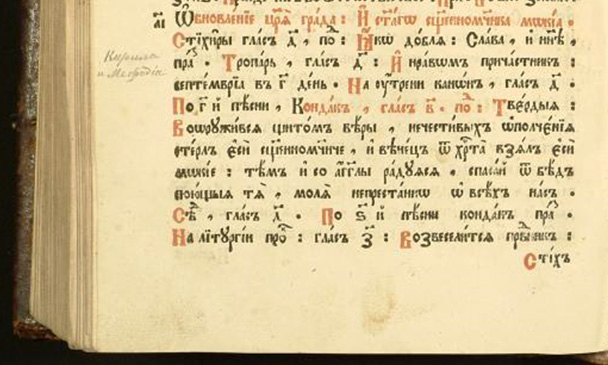 а҃і Ѡ҆бновле́нїе цр҃ѧ гра́да : И҆ ст҃а́гѡ сщ҃енномч҃ника мѡкі́ѧ .
Стїхи̑ры гла́съ д҃ , по́ : Ꙗ҆́кѡ до́блѧ : Сла́ва , и҆ нн҃ѣ ,
Кирила
и Меѳодіѧ
пра́ . Тропа́рь , гла́съ д҃ : И҆ нра́вомъ прича́стникъ :
септе́мврїа въ г҃ де́нь . На ᲂу҆́трени кано́нъ , гла́съ д҃ .
По г҃ й пѣ́сни , Конда́къ , гла́съ в҃ . по́ : Тве́рдыѧ :
Воѡружи́всѧ щито́мъ вѣ́ры , нечести́выхъ ѡ҆полче́нїѧ
сте́рлъ є҆сѝ сщ҃енномч҃ниче , и҆ вѣне́цъ ѿ хрт҃а̀ взѧ́лъ є҆сѝ
мѡкі́е : тѣ́мъ и҆ со а҆́гг҃лы ра́дꙋѧсѧ , спаса́й ѿ бѣ́дъ
пою́щыѧ тѧ̀ , молѧ̀ непреста́ннѡ ѡ҆ всѣ́хъ на́съ .
Свѣ́ , гла́съ д҃ . По ѕ҃ й пѣ́сни конда́къ пра́ .
На лїтꙋргі́и про́ : гла́съ з҃ : Возвесели́тсѧ првⷣникъ :
Сті́хъ